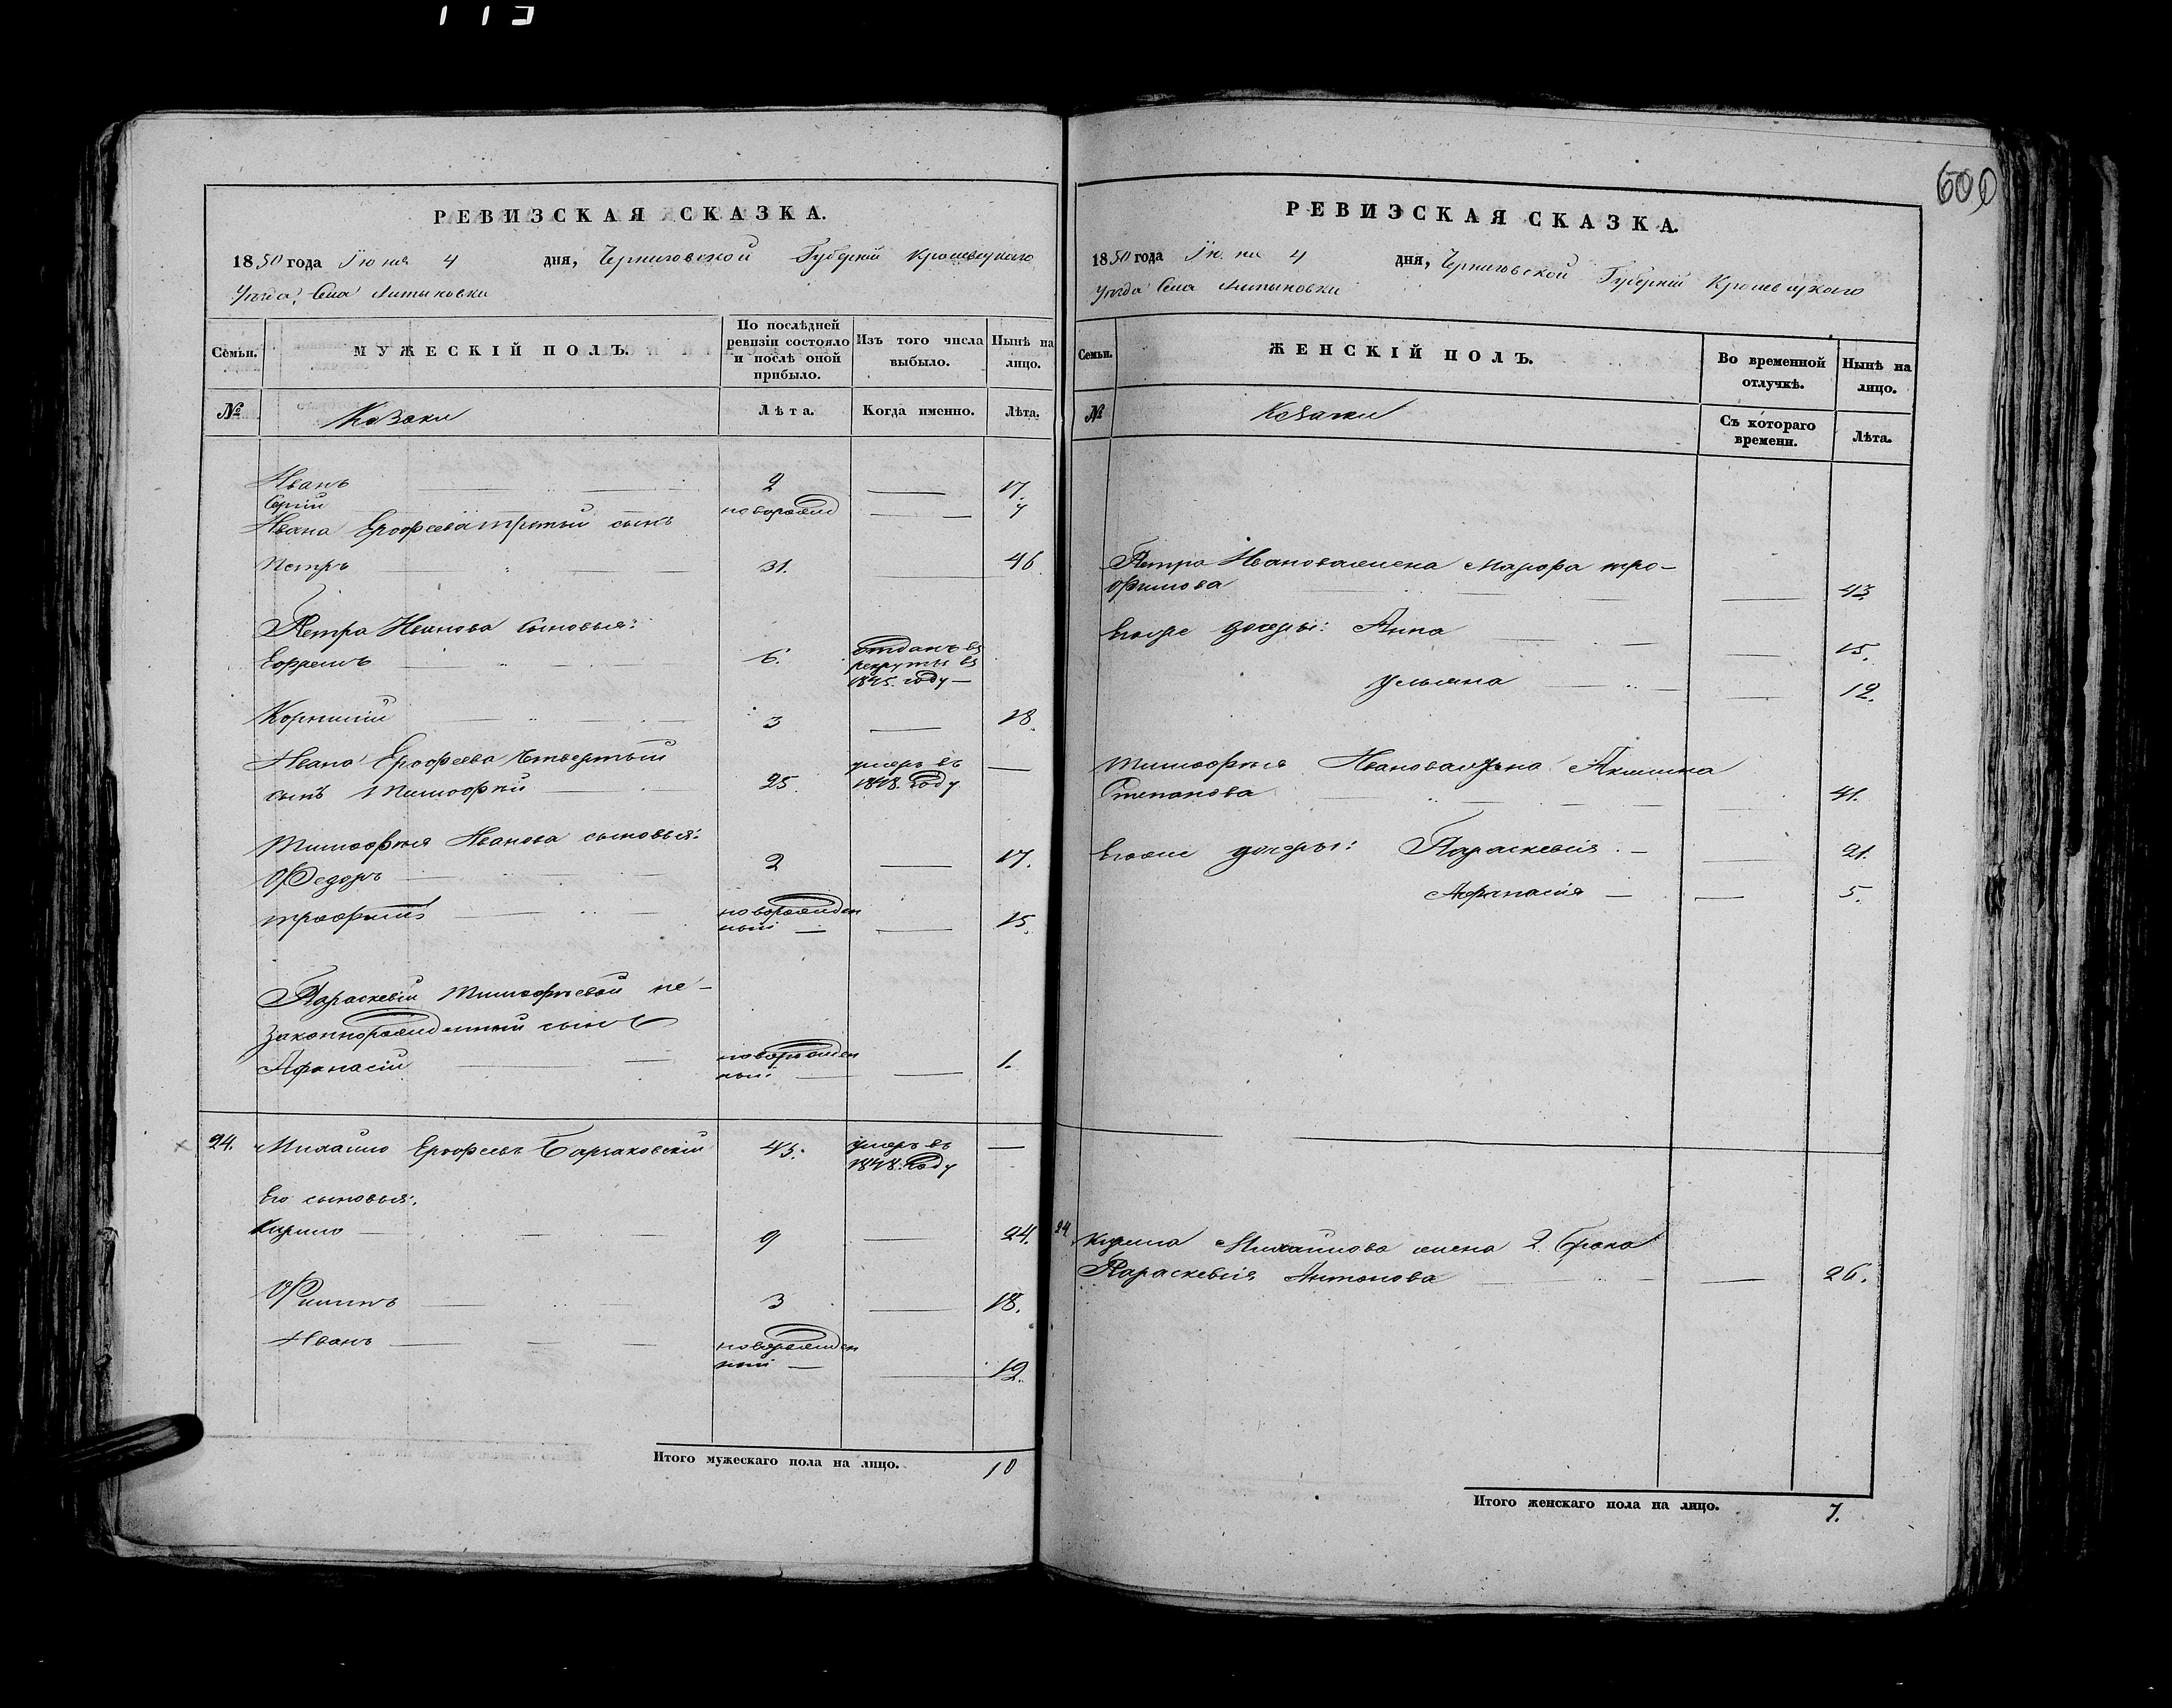 РЕВИЗСКАЯ СКАЗКА.
1850 года Июня 4 дня, Черниговской Губерніи Кролевецкаго
Уѣзда, Села
Семьи. МУЖЕСКІЙ ПОЛЪ. По послѣдней ревизіи состояло и послѣ оной прибыло. Изъ того числа выбыло. Нынѣ на лицо.
№ Козаки Лѣта. Когда именно. Лѣта.
Иванъ 2 — 17.
Сергій новорожд —
Ивана Ерофеева третий сынъ
Петръ 31. — 46
Петра Иванова сыновья:
Ефремъ 6. отданъ въ
рекруты въ
1845. году —
Корнилій 3 — 18.
Ивана Ерофеева четвертый
сынъ Тимофей 25 умеръ въ 1848. году —
Тимофея Иванова сыновья:
Федоръ 2 — 17.
Трофимъ новорожден
ный — — 15.
Параскевіи Тимофеевой не-
законнорожденный сынъ
Афонасій новорожден
ный — — 1.
24. Михайло Ерофеевъ 43. умеръ въ —
1848. году
Его сыновья:
Кирило — 9 — 24.
Филипъ 3 — 18.
Иванъ — новорожден
ный — — 12.
Итого мужескаго пола на лицо. 10
600
РЕВИЗСКАЯ СКАЗКА.
1850 года Июня 4 дня, Черниговской Губерніи Кролевецкаго
Уѣзда Села
Семьи. ЖЕНСКІЙ ПОЛЪ. Во временной отлучкѣ. Нынѣ на лицо.
№ Козачки Съ котораго времени. Лѣта.
Петра Иванова жена Марфа Тро-
фимова — 43
Егоже дочери: Анна — 15.
Ульяна — 12.
Тимофея Иванова жена Акилина
Степанова 41.
Егоже дочери: Параскевія — 21.
Афанасія — — 5.
24 Кирила Михайлова жена 2. брака
Параскевія Антонова — 26.
Итого женскаго пола на лицо. 7.